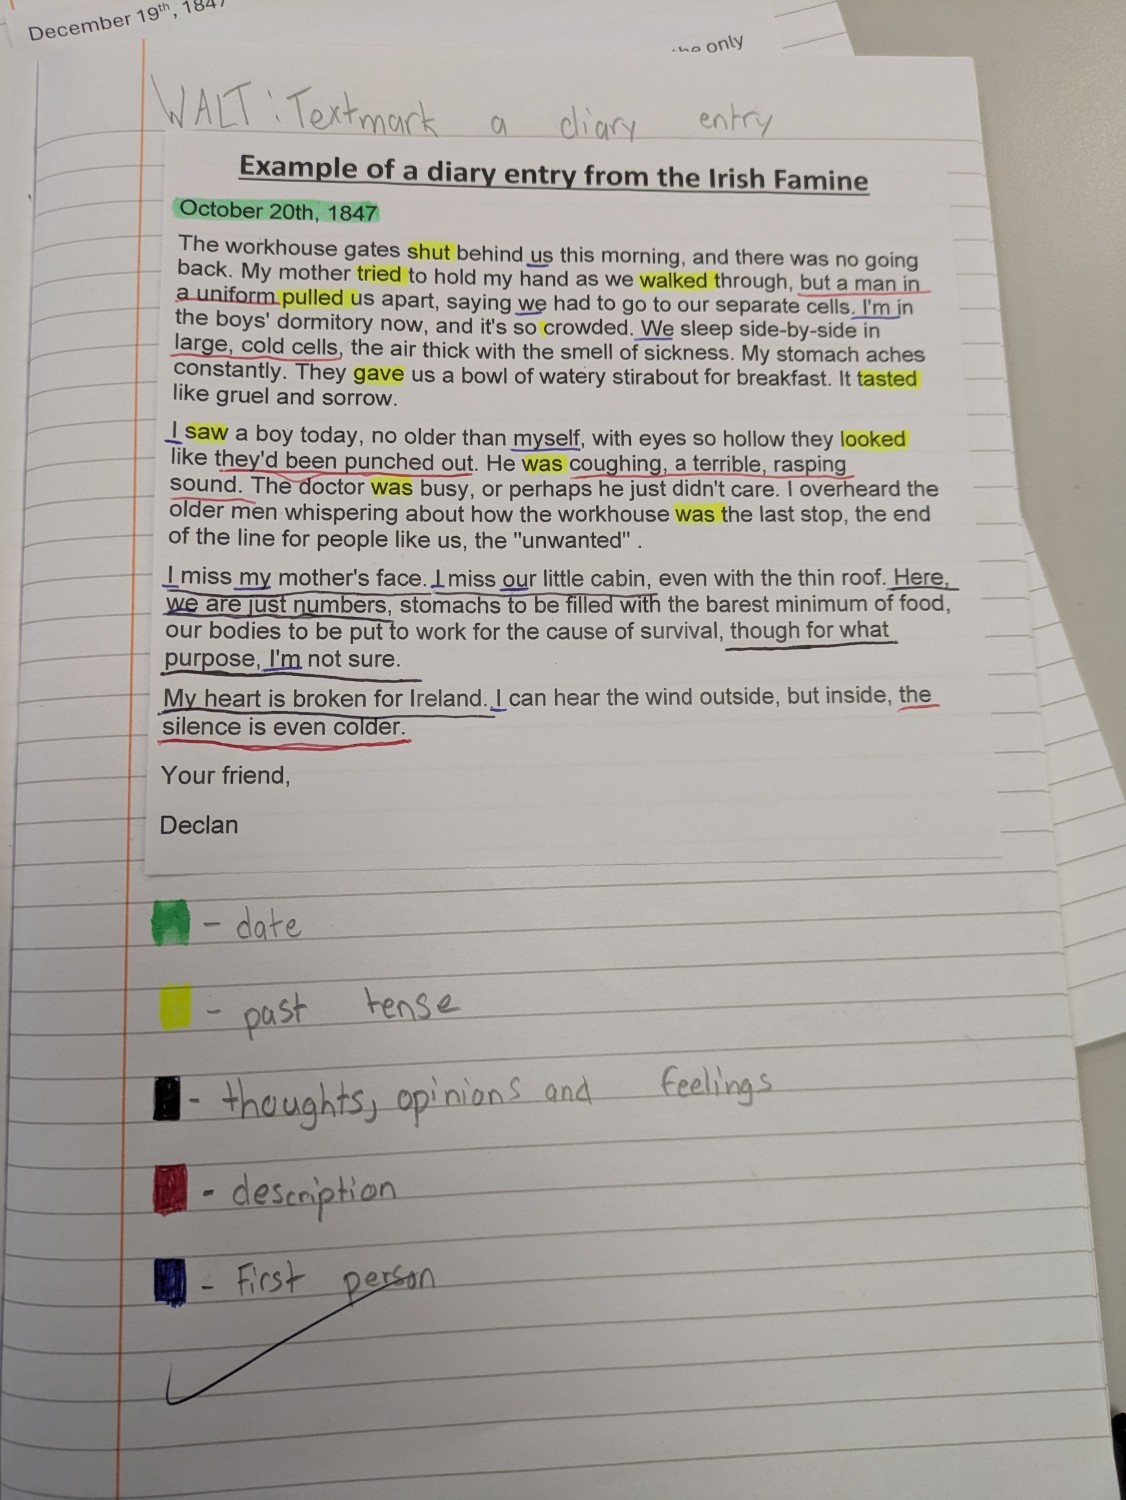 December 19th, 1847
the only
WALT: Textmark a diary entry
Example of a diary entry from the Irish Famine
October 20th, 1847
The workhouse gates shut behind us this morning, and there was no going
back. My mother tried to hold my hand as we walked through, but a man in
a uniform pulled us apart, saying we had to go to our separate cells. I'm in
the boys' dormitory now, and it's so crowded. We sleep side-by-side in
large, cold cells, the air thick with the smell of sickness. My stomach aches
constantly. They gave us a bowl of watery stirabout for breakfast. It tasted
like gruel and sorrow.
I saw a boy today, no older than myself, with eyes so hollow they looked
like they'd been punched out. He was coughing, a terrible, rasping
sound. The doctor was busy, or perhaps he just didn't care. I overheard the
older men whispering about how the workhouse was the last stop, the end
of the line for people like us, the "unwanted" .
I miss my mother's face. I miss our little cabin, even with the thin roof. Here,
we are just numbers, stomachs to be filled with the barest minimum of food,
our bodies to be put to work for the cause of survival, though for what
purpose, I'm not sure.
My heart is broken for Ireland. I can hear the wind outside, but inside, the
silence is even colder.
Your friend,
Declan
- date
- past tense
- thoughts, opinions and feelings
- description
- First person